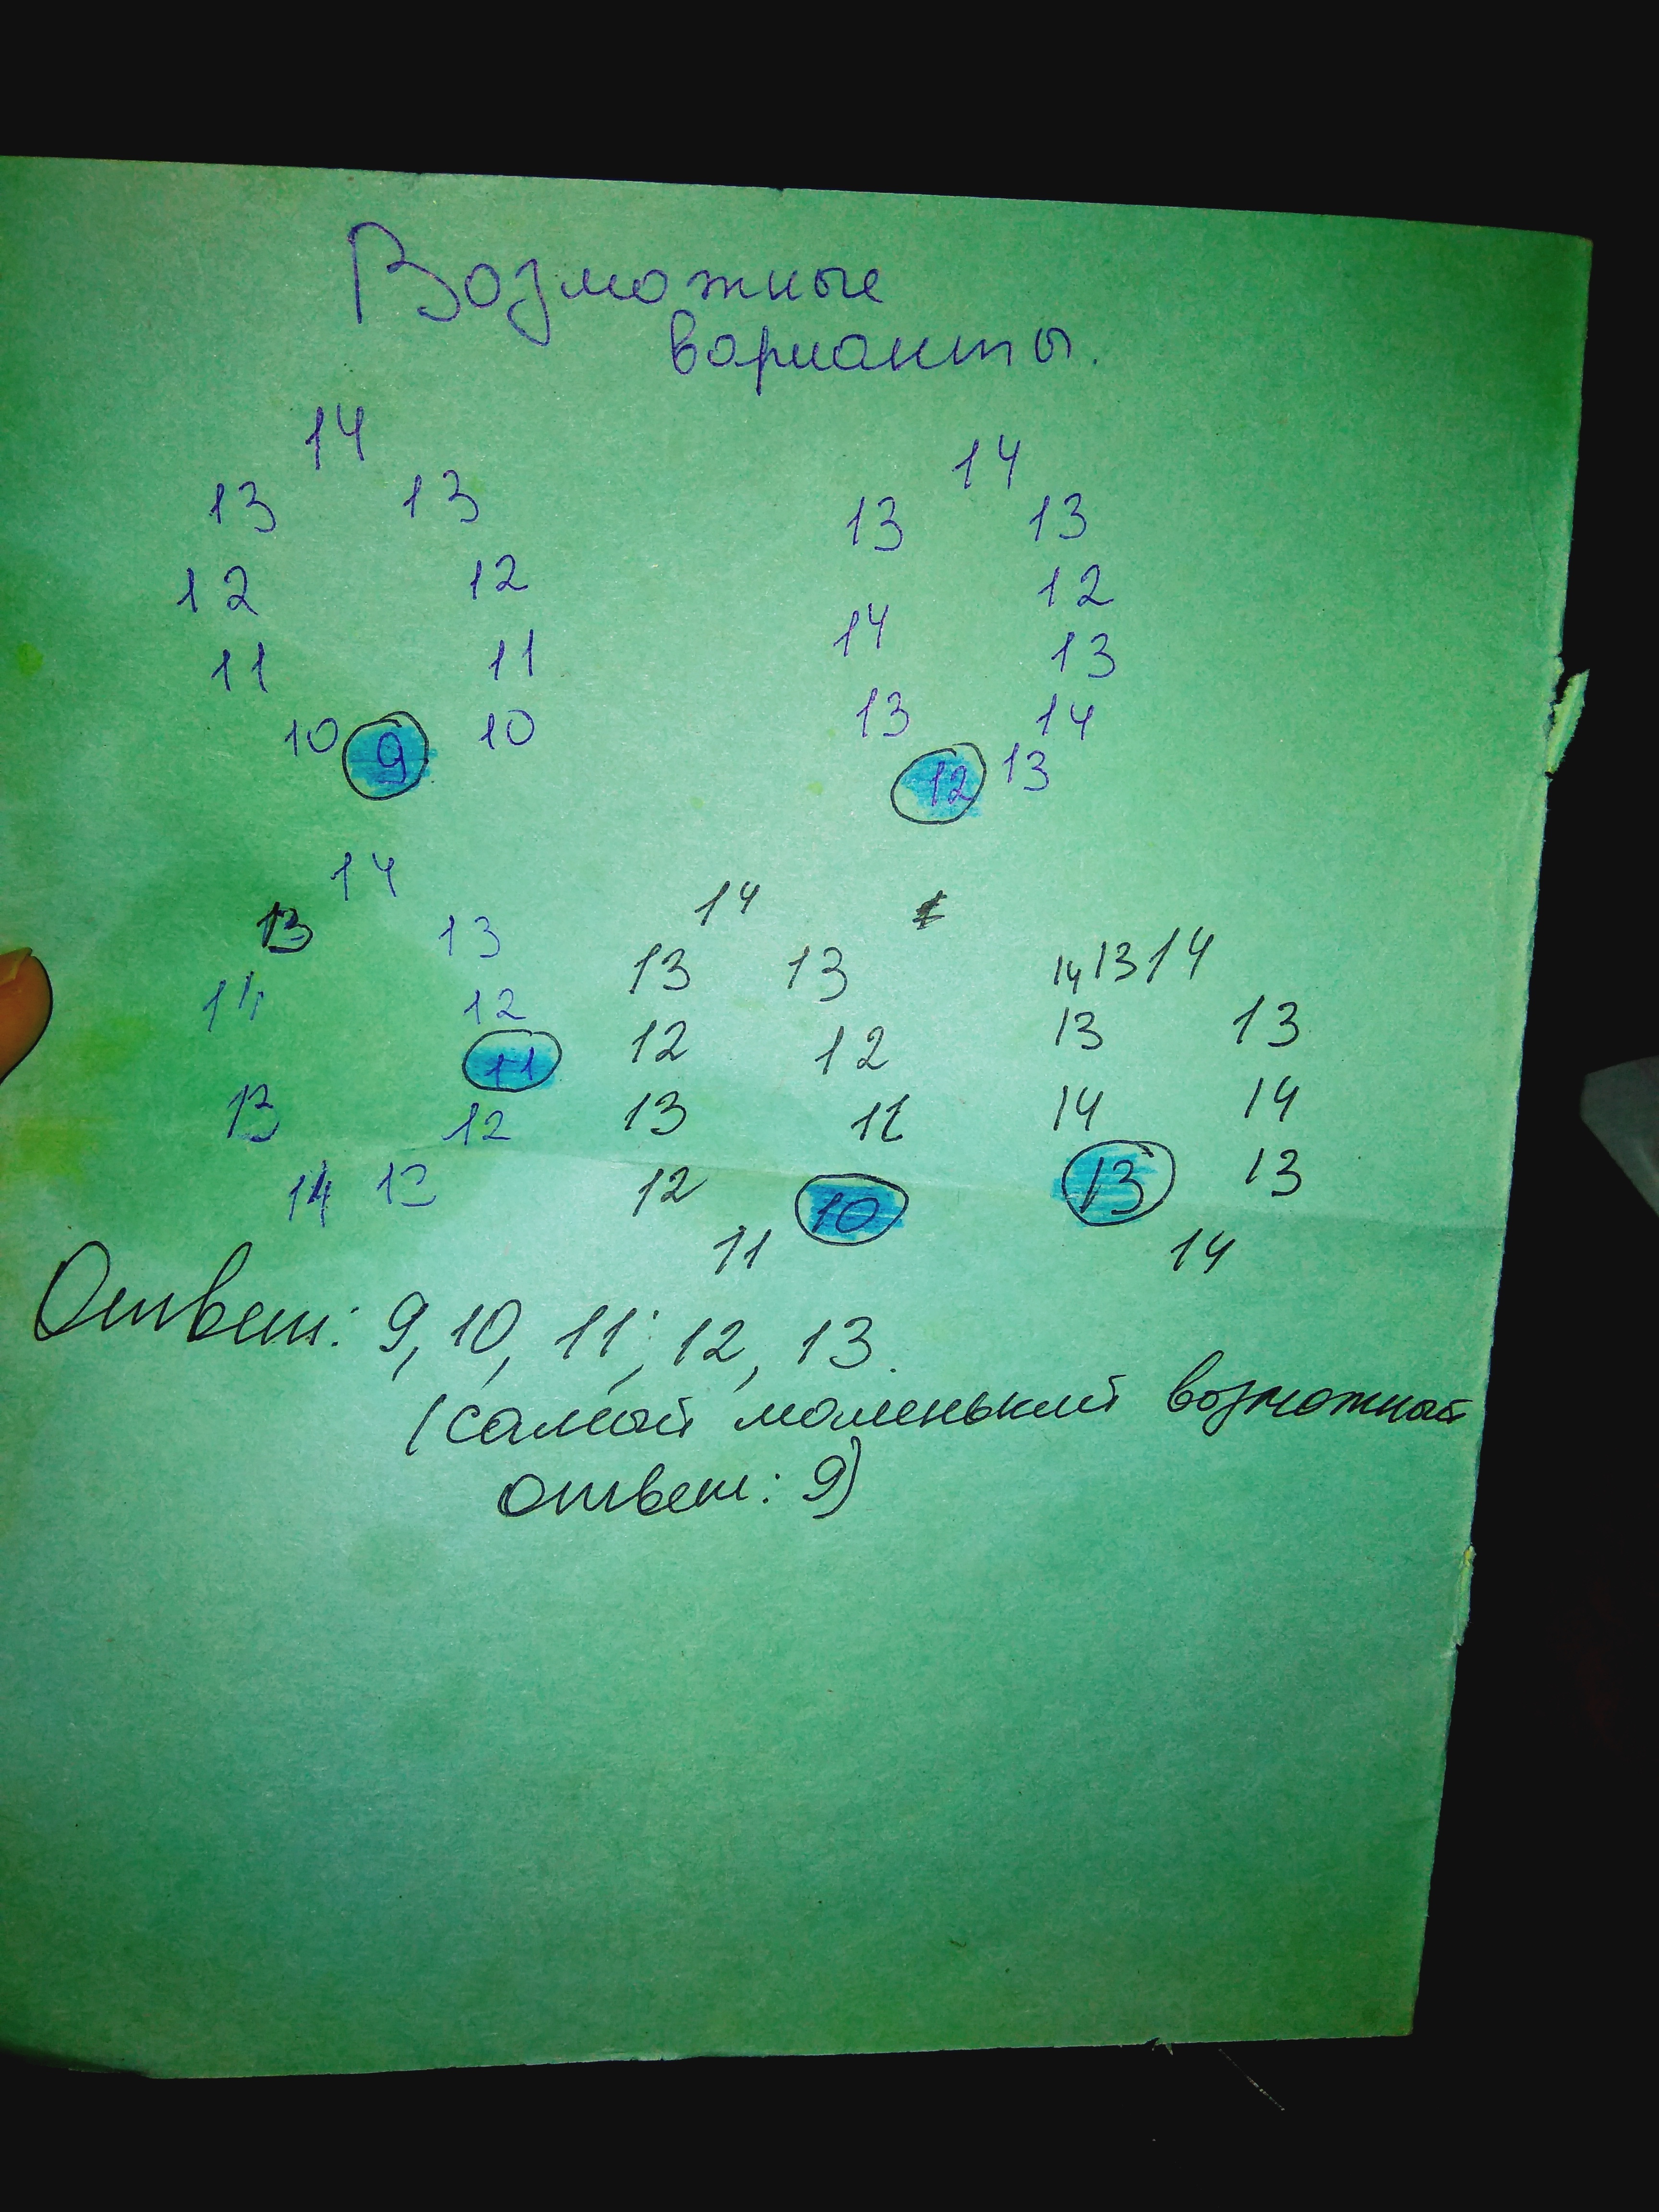 Возможные
варианты.
14
13 13
12 12
11 11
10 9 10
14
13 13
12
14 13
13 14
12 13
14
13 13
14 12
11
13 12
14 13
14
13 13
12 12
13 11
12 10
11
14 13 14
13 13
14 14
13 13
14
Ответ: 9, 10, 11; 12, 13.
(самый маленький возможный
ответ: 9)